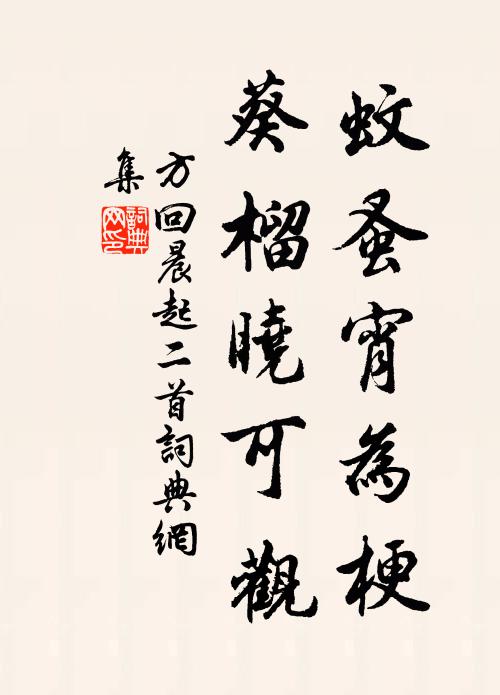 蚊蚤宵為梗
葵榴曉可觀
方回晨起二首詞典網
集
詞典
网印